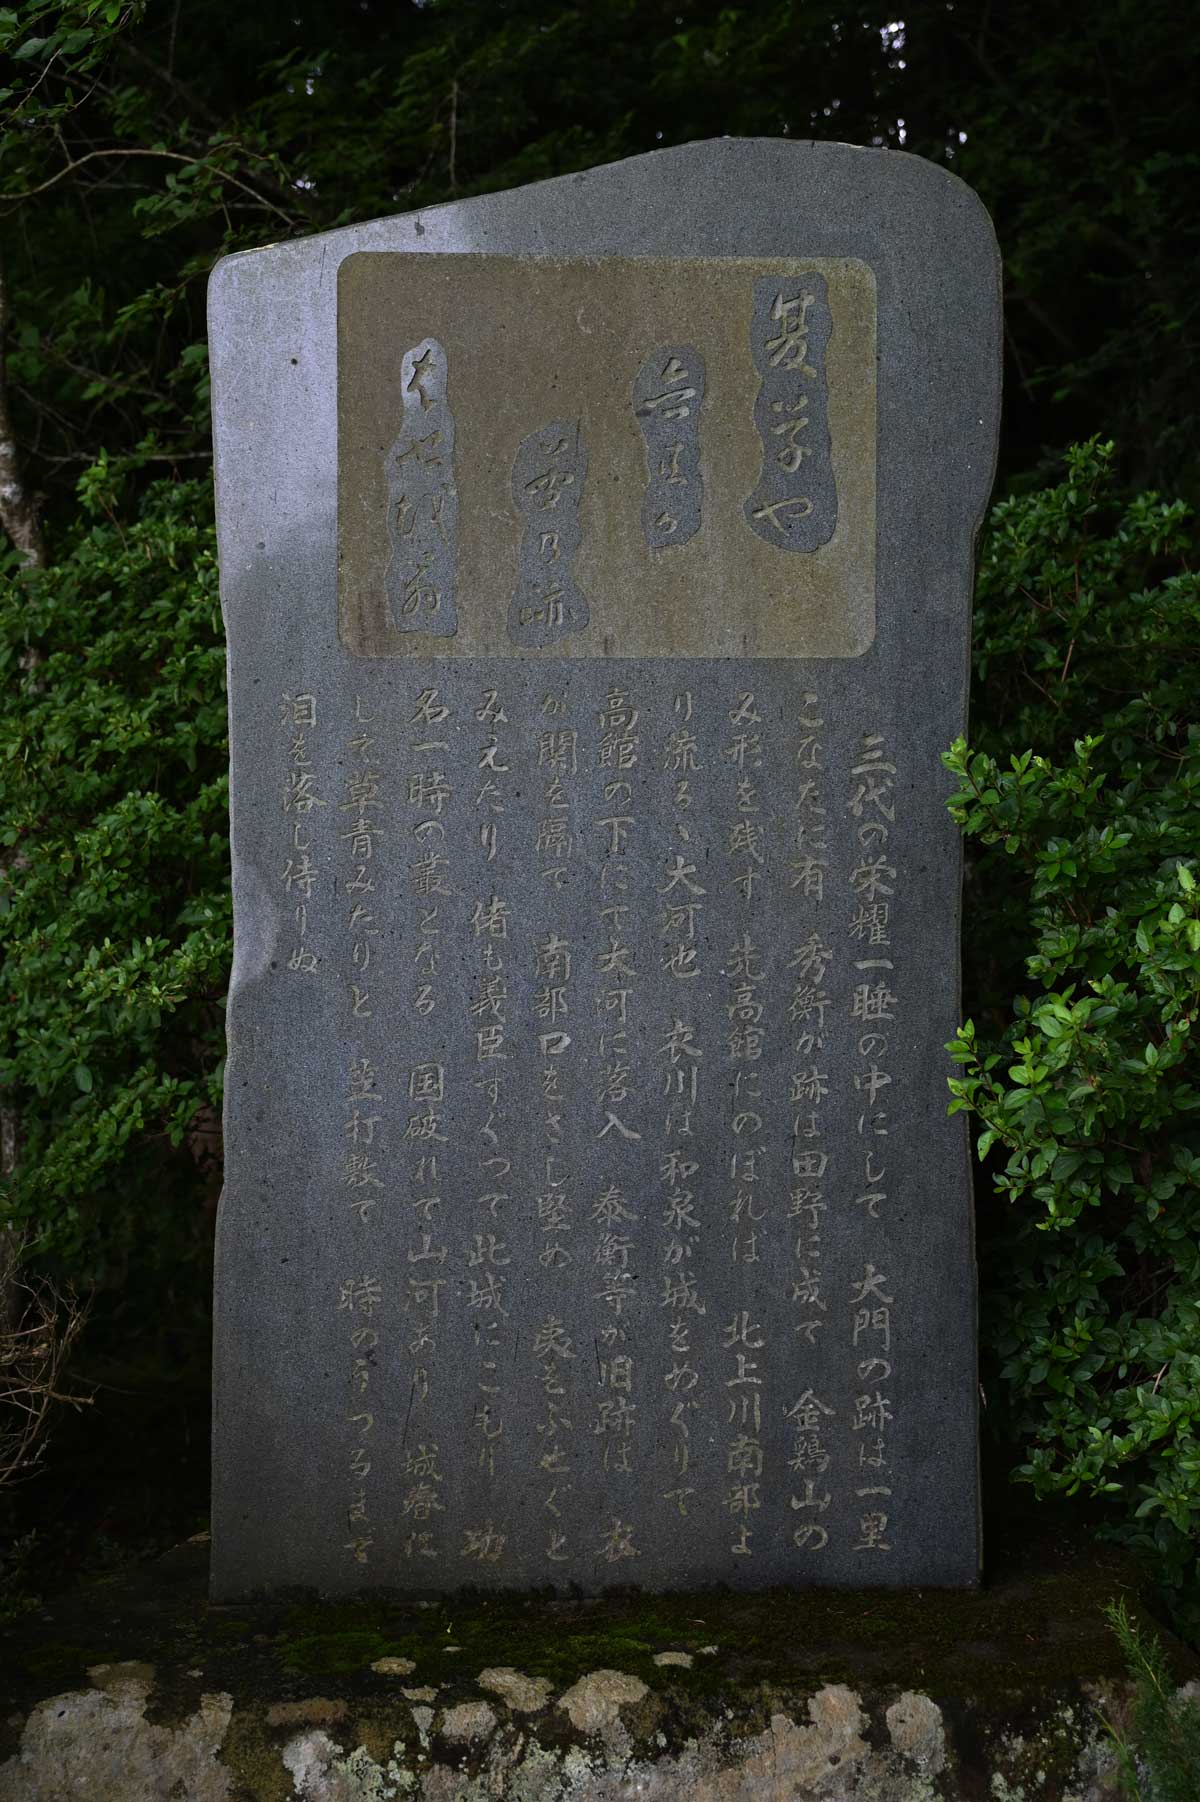 夏草や
兵共が
夢乃跡
はせ越翁
三代の栄耀一睡の中にして 大門の跡は一里
こなたに有 秀衡が跡は田野に成て 金鶏山の
み形を残す 先高館にのぼれば 北上川南部よ
り流るゝ大河也 衣川は和泉が城をめぐりて
高館の下にて大河に落入 泰衡等が旧跡は 衣
が関を隔て 南部口をさし堅め 夷をふせぐと
みえたり 偖も義臣すぐつて此城にこもり 功
名一時の叢となる 国破れて山河あり 城春に
して草青みたりと 笠打敷て 時のうつるまで
泪を落し侍りぬ